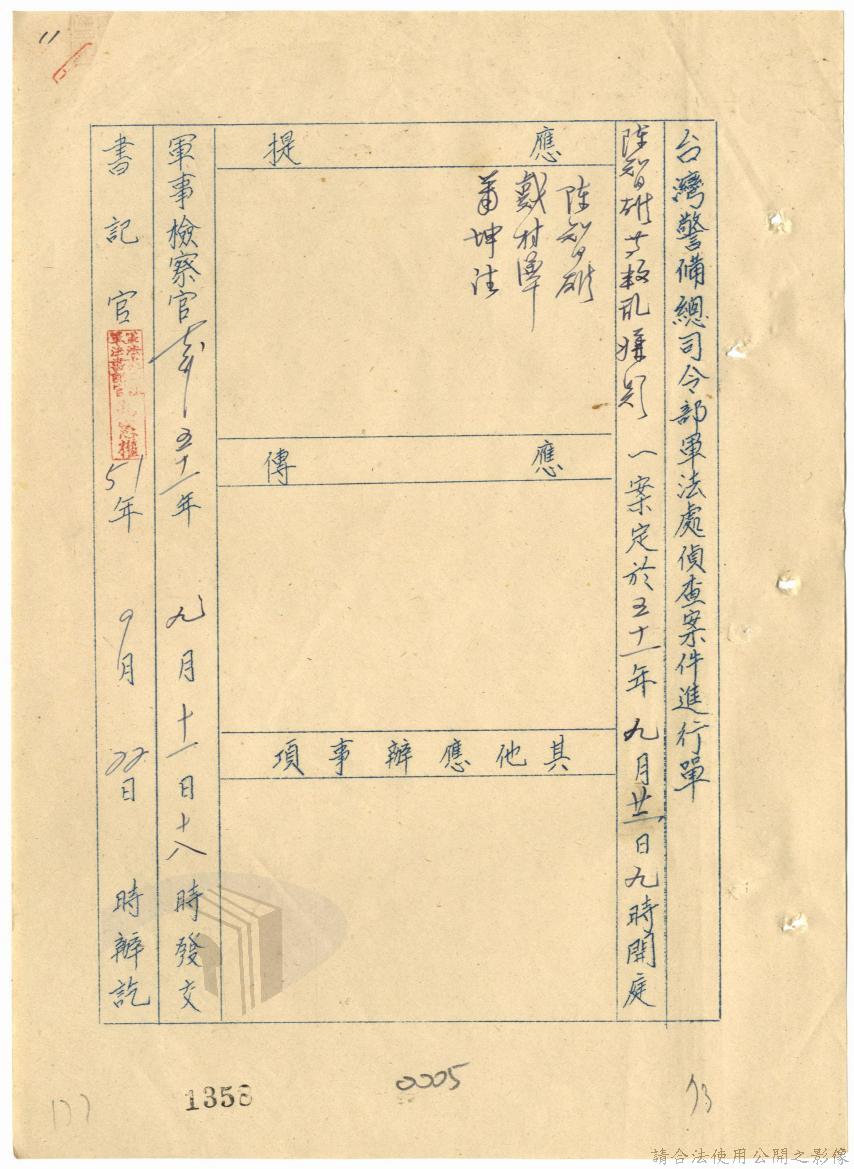 11
台灣警備總司令部軍法處偵查案件進行單
陳智雄等叛亂嫌疑一案定於五十一年九月廿二日九時開庭
應提
陳智雄
戴村澤
蕭坤旺
應傳
其他應辦事項
軍事檢察官 五十一年九月十一日十八時發交
書記官 51年9月22日 時辦訖
1358
0005
73
請合法使用公開之影像